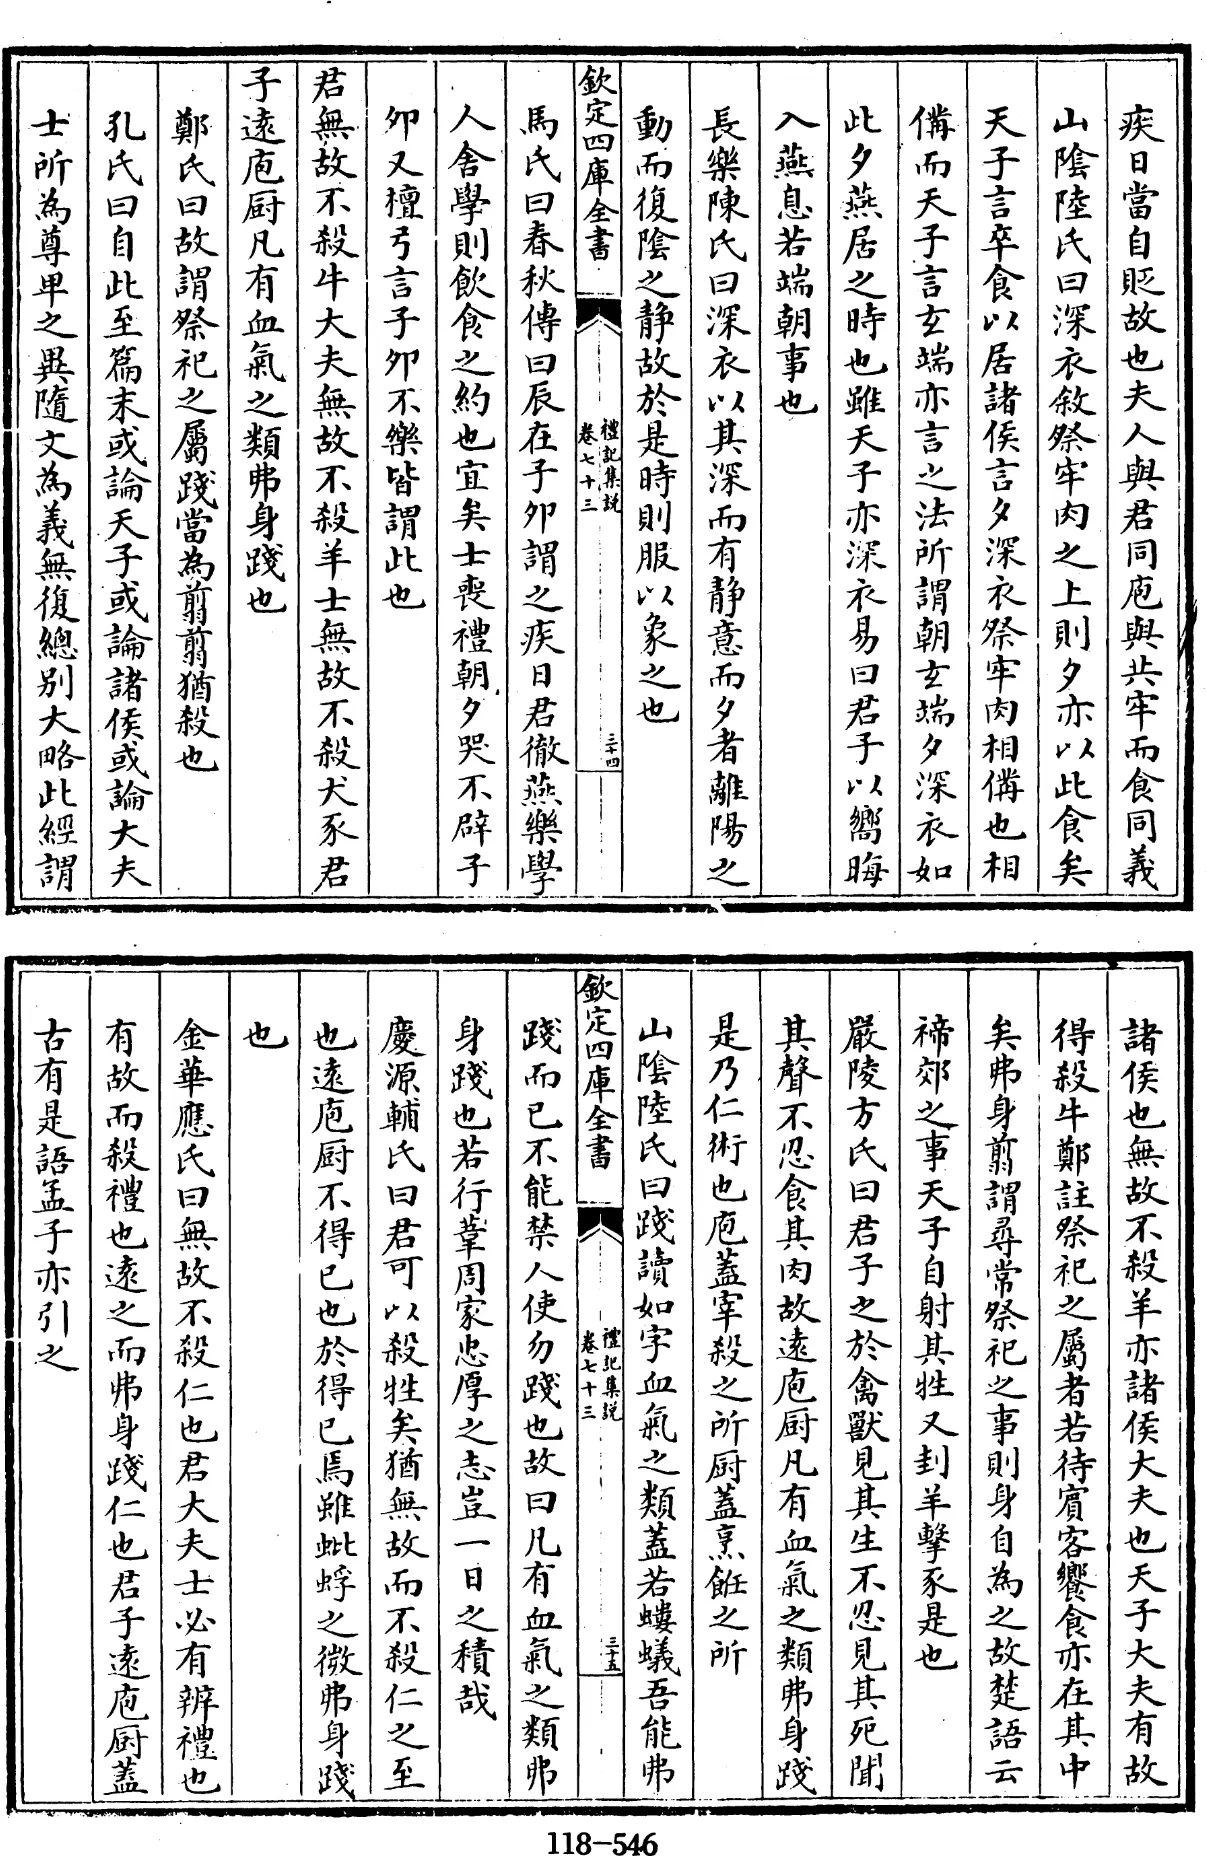 疾日當自貶故也夫人與君同庖與共牢而食同義
山陰陸氏曰深衣敘祭牢肉之上則夕亦以此食矣
天子言卒食以居諸侯言夕深衣祭牢肉相備也相
備而天子言玄端亦言之法所謂朝玄端夕深衣如
此夕燕居之時也雖天子亦深衣易曰君子以嚮晦
入燕息若端朝事也
長樂陳氏曰深衣以其深而有静意而夕者離陽之
動而復陰之静故於是時則服以象之也
欽定四庫全書
禮記集說
卷七十三
三十四
馬氏曰春秋傳曰辰在子夘謂之疾日君徹燕樂學
人舍學則飲食之約也宜矣士喪禮朝夕哭不辟子
夘又檀弓言子夘不樂皆謂此也
君無故不殺牛大夫無故不殺羊士無故不殺犬豕君
子遠庖厨凡有血氣之類弗身踐也
鄭氏曰故謂祭祀之屬踐當為翦翦猶殺也
孔氏曰自此至篇末或論天子或論諸侯或論大夫
士所為尊卑之異隨文為義無復總别大略此經謂
諸侯也無故不殺羊亦諸侯大夫也天子大夫有故
得殺牛鄭註祭祀之屬者若待賓客饗食亦在其中
矣弗身翦謂尋常祭祀之事則身自為之故楚語云
禘郊之事天子自射其牲又刲羊擊豕是也
嚴陵方氏曰君子之於禽獸見其生不忍見其死聞
其聲不忍食其肉故遠庖厨凡有血氣之類弗身踐
是乃仁術也庖蓋宰殺之所厨蓋烹飪之所
山陰陸氏曰踐讀如字血氣之類蓋若螻蟻吾能弗
欽定四庫全書
禮記集說
卷七十三
三十五
踐而已不能禁人使勿踐也故曰凡有血氣之類弗
身踐也若行葦周家忠厚之志豈一日之積哉
慶源輔氏曰君可以殺牲矣猶無故而不殺仁之至
也遠庖厨不得已也於得已焉雖蚍蜉之微弗身踐
也
金華應氏曰無故不殺仁也君大夫士必有辨禮也
有故而殺禮也遠之而弗身踐仁也君子遠庖厨蓋
古有是語孟子亦引之
118-546